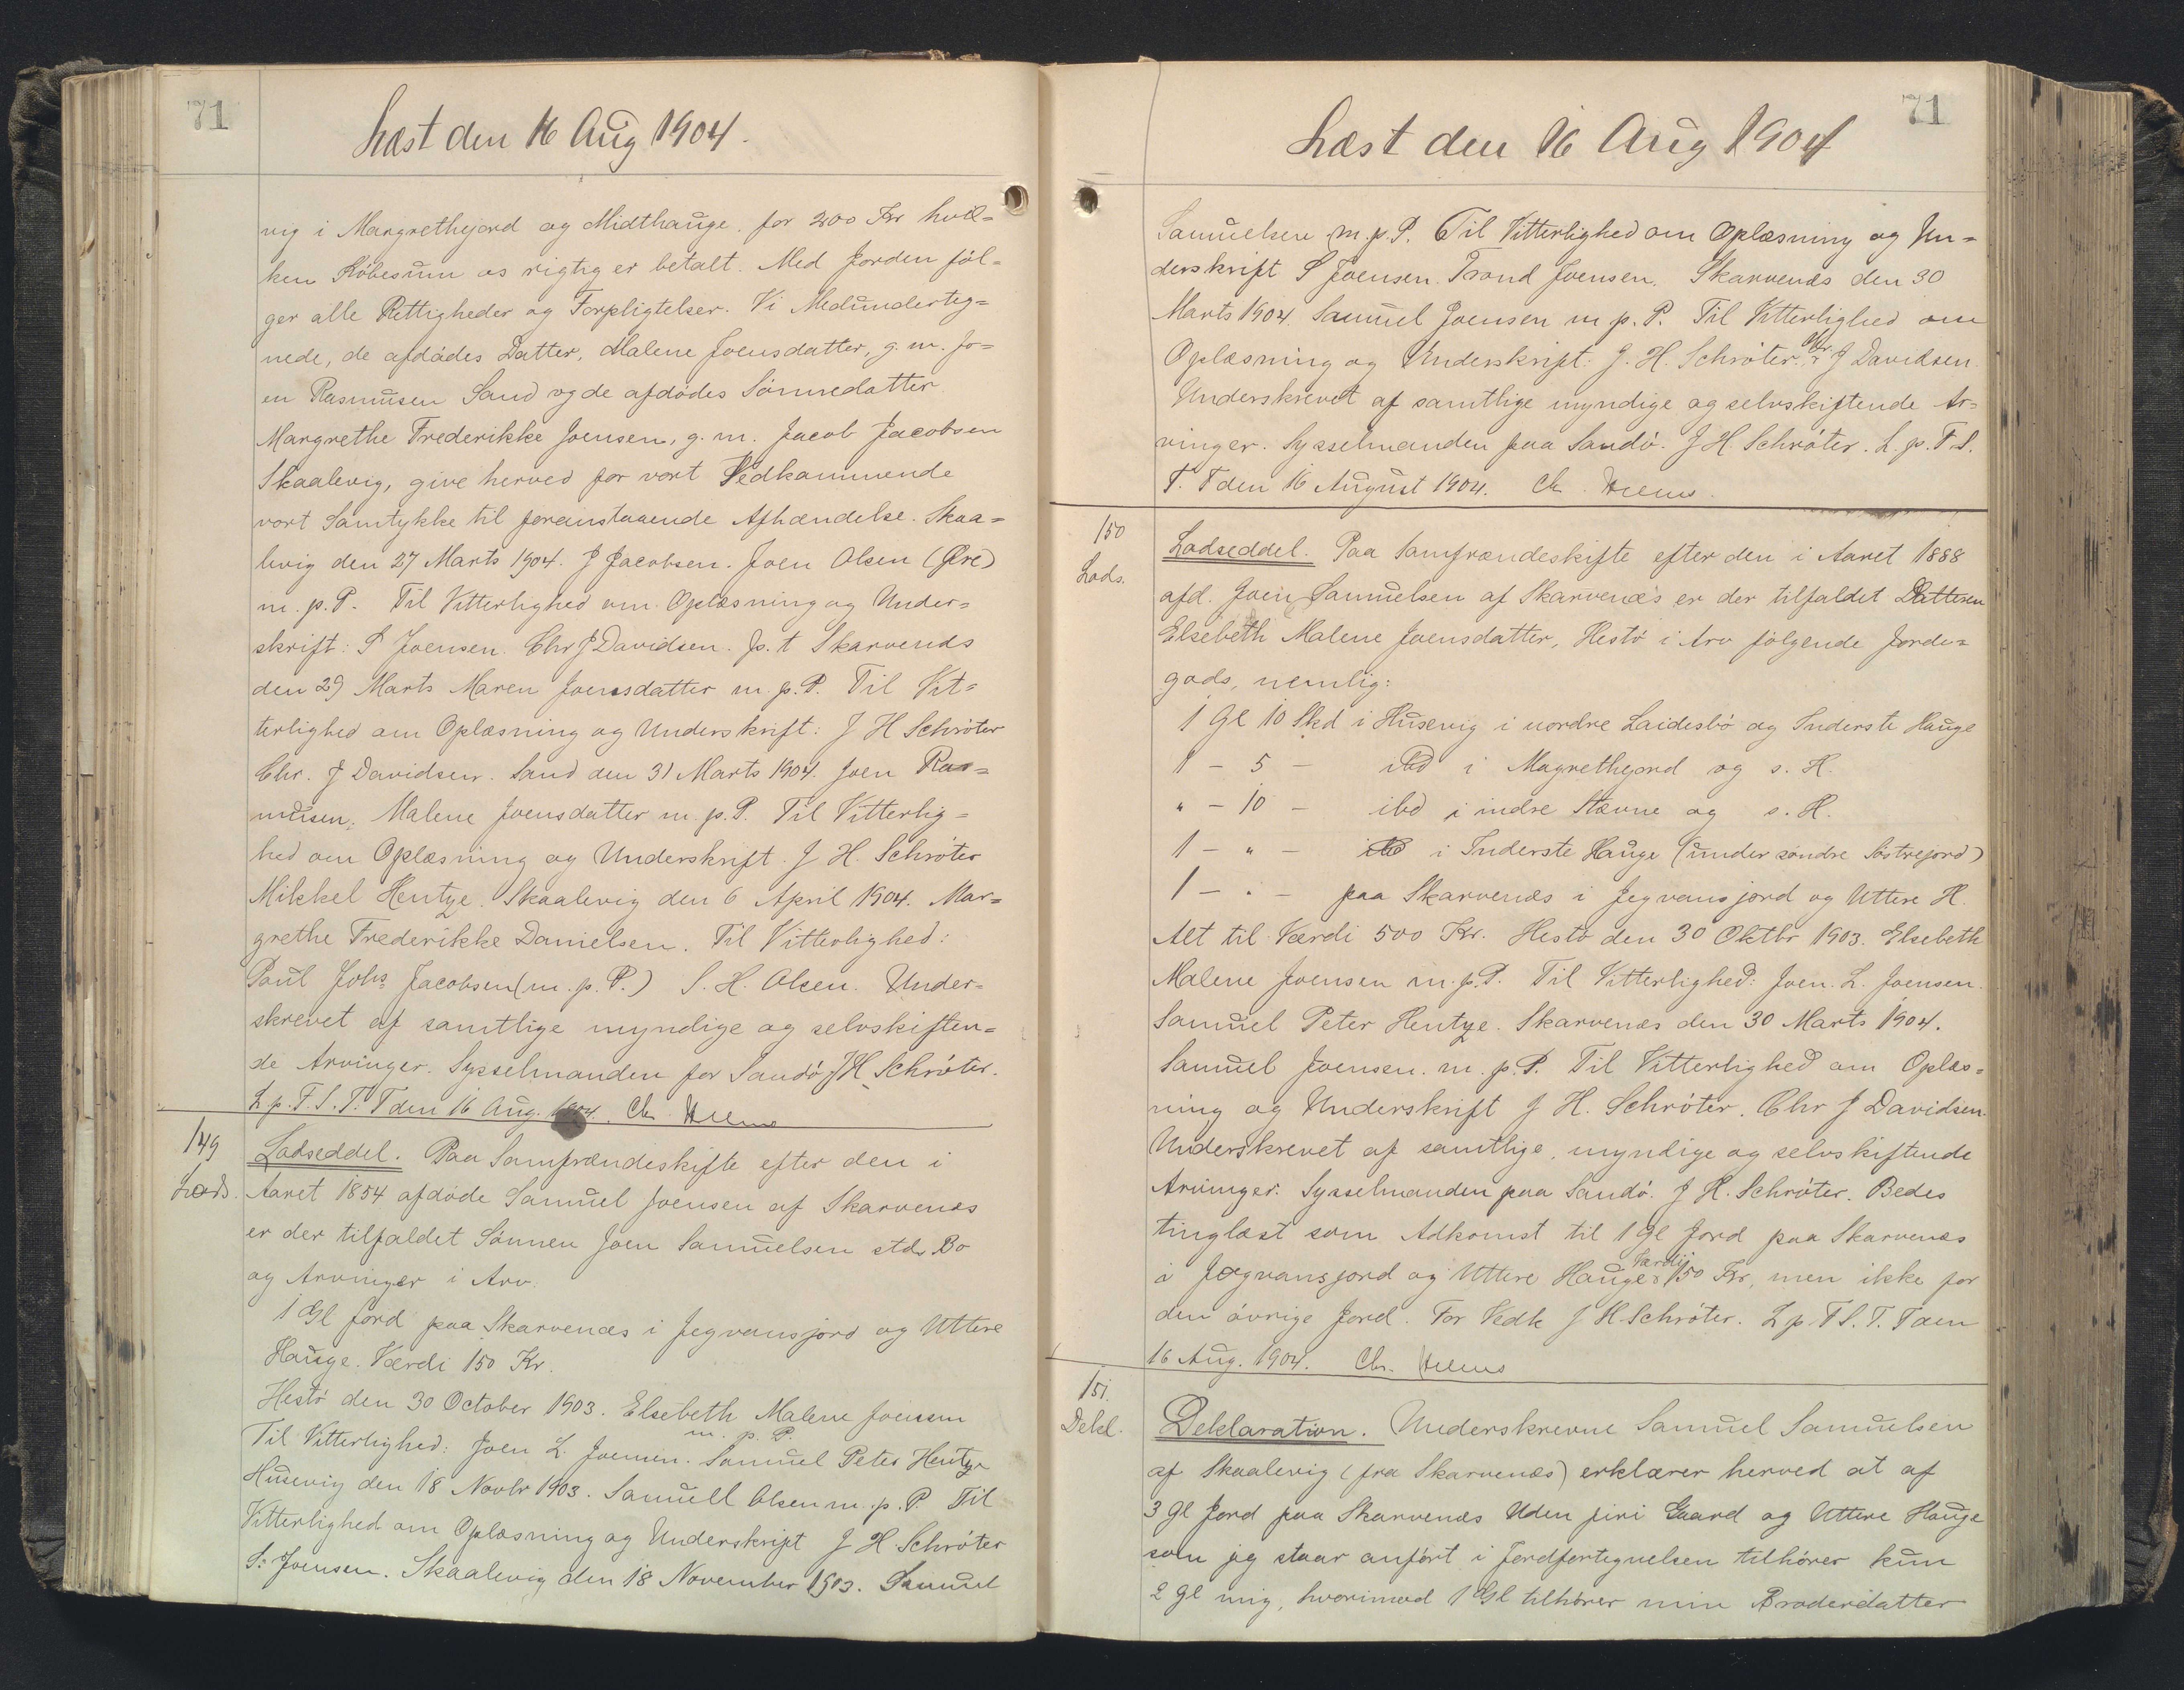 71
Læst den 16 Aug 1904.
vig i Margrethejord og Midthauge, for 200 Kr hvil=
ken Købesum os rigtig er betalt. Med Jorden føl=
ger alle Rettigheder og Forpligtelser. Vi Medunderteg=
nede, de afdødes Datter, Malene Joensdatter, g. m. Jo=
en Rasmusen Sand og de afdødes Sønnedatter
Margrethe Frederikke Joensen, g. m. Jacob Jacobsen
Skaalevig, give herved for vort Vedkommende
vort Samtykke til foranstaaende Afhændelse. Skaa=
levig den 27 Marts 1904. J Jacobsen. Joen Olsen (Øre)
m. p. P. Til Vitterlighed om Oplæsning og Under=
skrift: S Joensen. Chr J Davidsen. p. t Skarvenæs
den 29 Marts Maren Joensdatter m. p. P. Til Vit=
terlighed om Oplæsning og Underskrift: J H Schrøter
Chr. J Davidsen. Sand den 31 Marts 1904. Joen Ras=
musen. Malene Joensdatter m. p. P. Til Vitterlig=
hed om Oplæsning og Underskrift. J H. Schrøter
Mikkel Hentze. Skaalevig den 6 April 1904. Mar=
grethe Frederikke Danielsen. Til Vitterlighed:
Poul Johs Jacobsen (m. p. P.) S. H. Olsen. Under=
skrevet af samtlige myndige og selvskiften=
de Arvinger. Sysselmanden for Sandø J H Schrøter.
L. p. F. S. T. T den 16 Aug. 1904. Ch
149
Lods.
Lodseddel. Paa Samfrændeskifte efter den i
Aaret 1854 afdøde Samuel Joensen af Skarvenæs
er der tilfaldet Sønnen Joen Samuelsen stds Bo
og Arvinger i Arv:
1 Gl Jord paa Skarvenæs i Jegvansjord og Uttere
Hauge. Værdi 150 Kr.
Hestø den 30 October 1903. Elsebeth Malene Joensen
m. p. P.
Til Vitterlighed: Joen L. Joensen. Samuel Peter Hentze
Husevig den 18 Novbr 1903. Samuell Olsen m. p. P. Til
Vitterlighed om Oplæsning og Underskrift J H. Schrøter
S. Joensen. Skaalevig den 18 November 1903. Samuel
71
Læst den 16 Aug 1904
Samuelsen m. p. P. Til Vitterlighed om Oplæsning og Un=
derskrift S Joensen. Trond Joensen. Skarvenæs den 30
Marts 1904. Samuel Joensen m p. P. Til Vitterlighed om
Oplæsning og Underskrift: J. H. Schrøter. Chr. J Davidsen.
Underskrevet af samtlige myndige og selvskiftende Ar=
vinger. Sysselmanden paa Sandø. J H. Schrøter. L. p. F. S.
T. T den 16 August 1904. Ch.
150
Lods.
Lodseddel. Paa Samfrændeskifte efter den i Aaret 1888
afd. Joen Samuelsen af Skarvenæs er der tilfaldet Datteren
Elsebeth Malene Joensdatter, Hestø i Arv følgende Jorde=
gods, nemlig:
1 Gl 10 Skd i Husevig i nordre Laidesbø og Inderste Hauge
1 - 5 - ibd i Magrethejord og s. H.
" - 10 - ibd i indre Stævne og s. H.
1 - " - ibd i Inderste Hauge (under søndre Søstrejord)
1 - " - paa Skarvenæs i Jegvansjord og Uttere H.
Alt til Værdi 500 Kr. Hestø den 30 Oktbr 1903. Elsebeth
Malene Joensen m. p. P. Til Vitterlighed: Joen. L. Joensen.
Samuel Peter Hentze. Skarvenæs den 30 Marts 1904.
Samuel Joensen. m. p. P. Til Vitterlighed om Oplæs=
ning og Underskrift J H. Schrøter. Chr J Davidsen.
Underskrevet af samtlige, myndige og selvskiftende
Arvinger. Sysselmanden paa Sandø. J H. Schrøter. Bedes
tinglæst som Adkomst til 1 Gl Jord paa Skarvenæs
i Jegvansjord og Uttere Hauge Værdi 150 Kr, men ikke for
den øvrige Jord. For Vedk J H Schrøter. L p F S. T. T den
16 Aug. 1904. Ch.
151.
Dekl.
Deklaration. Underskrevne Samuel Samuelsen
af Skaalevig (fra Skarvenæs) erklærer herved at af
3 Gl Jord paa Skarvenæs Uden firi Gaard og Uttere Hauge
som jeg staar anført i Jordfortegnelsen tilhører kun
2 Gl mig, hvorimod 1 Gl tilhører min Broderdatter